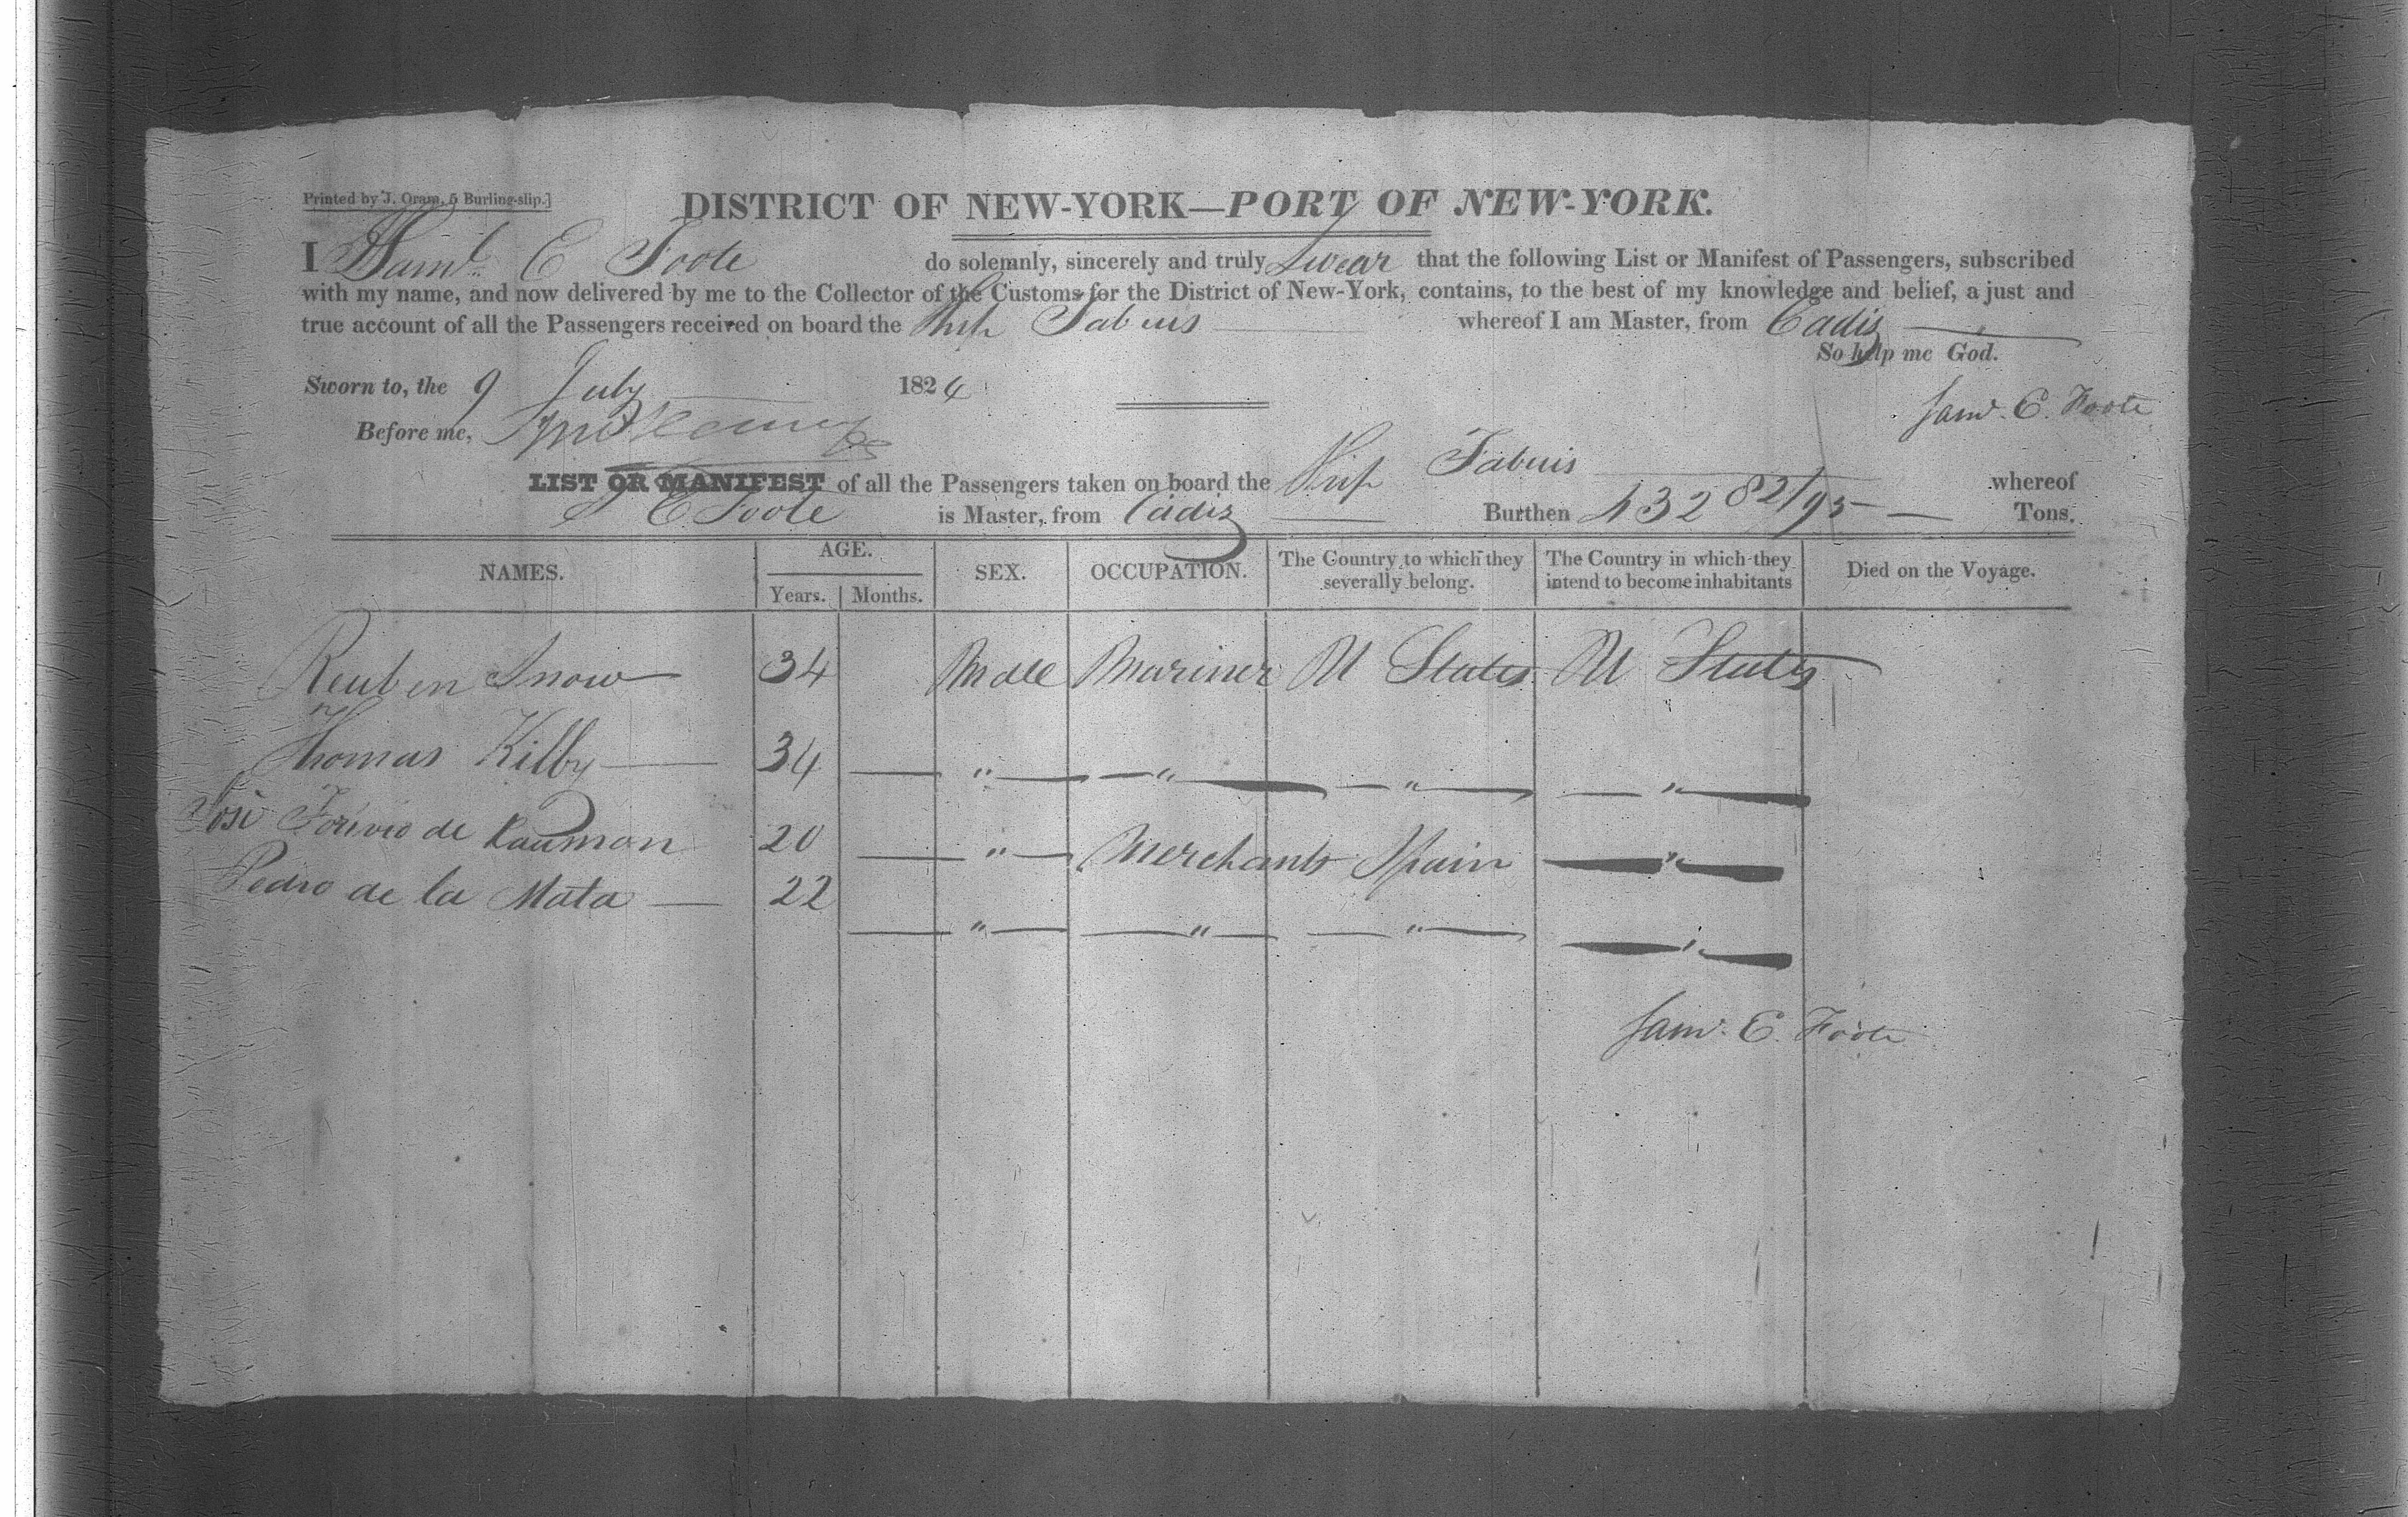 Printed by J. Oram, 5 Burling-slip.]
DISTRICT OF NEW-YORK—PORT OF NEW-YORK.
I Saml. E Foote do solemnly, sincerely and truly Swear that the following List or Manifest of Passengers, subscribed
with my name, and now delivered by me to the Collector of the Customs for the District of New-York, contains, to the best of my knowledge and belief, a just and
true account of all the Passengers received on board the Ship Fabius whereof I am Master, from Cadiz
So help me God.
Sworn to, the 9 July 1824
Saml. E. Foote
Before me,
LIST OR MANIFEST of all the Passengers taken on board the Ship Fabius whereof
S E Foote is Master, from Cadiz Burthen 432 82/95 Tons.
NAMES. AGE. SEX. OCCUPATION. The Country to which they severally belong. The Country in which they intend to become inhabitants Died on the Voyage.
Years. Months.
Reuben Snow 34 Male Mariner U States U States
Thomas Kilby — 34 — " — " — " — "
José de 20 — " — Merchants Spain — "
Pedro de la Mata — 22 — " — " — " — "
Saml. E. Foote